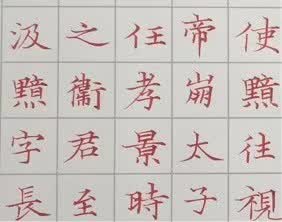 汲黯字長
之衛君至
任孝景時
帝崩太子
使黯往視